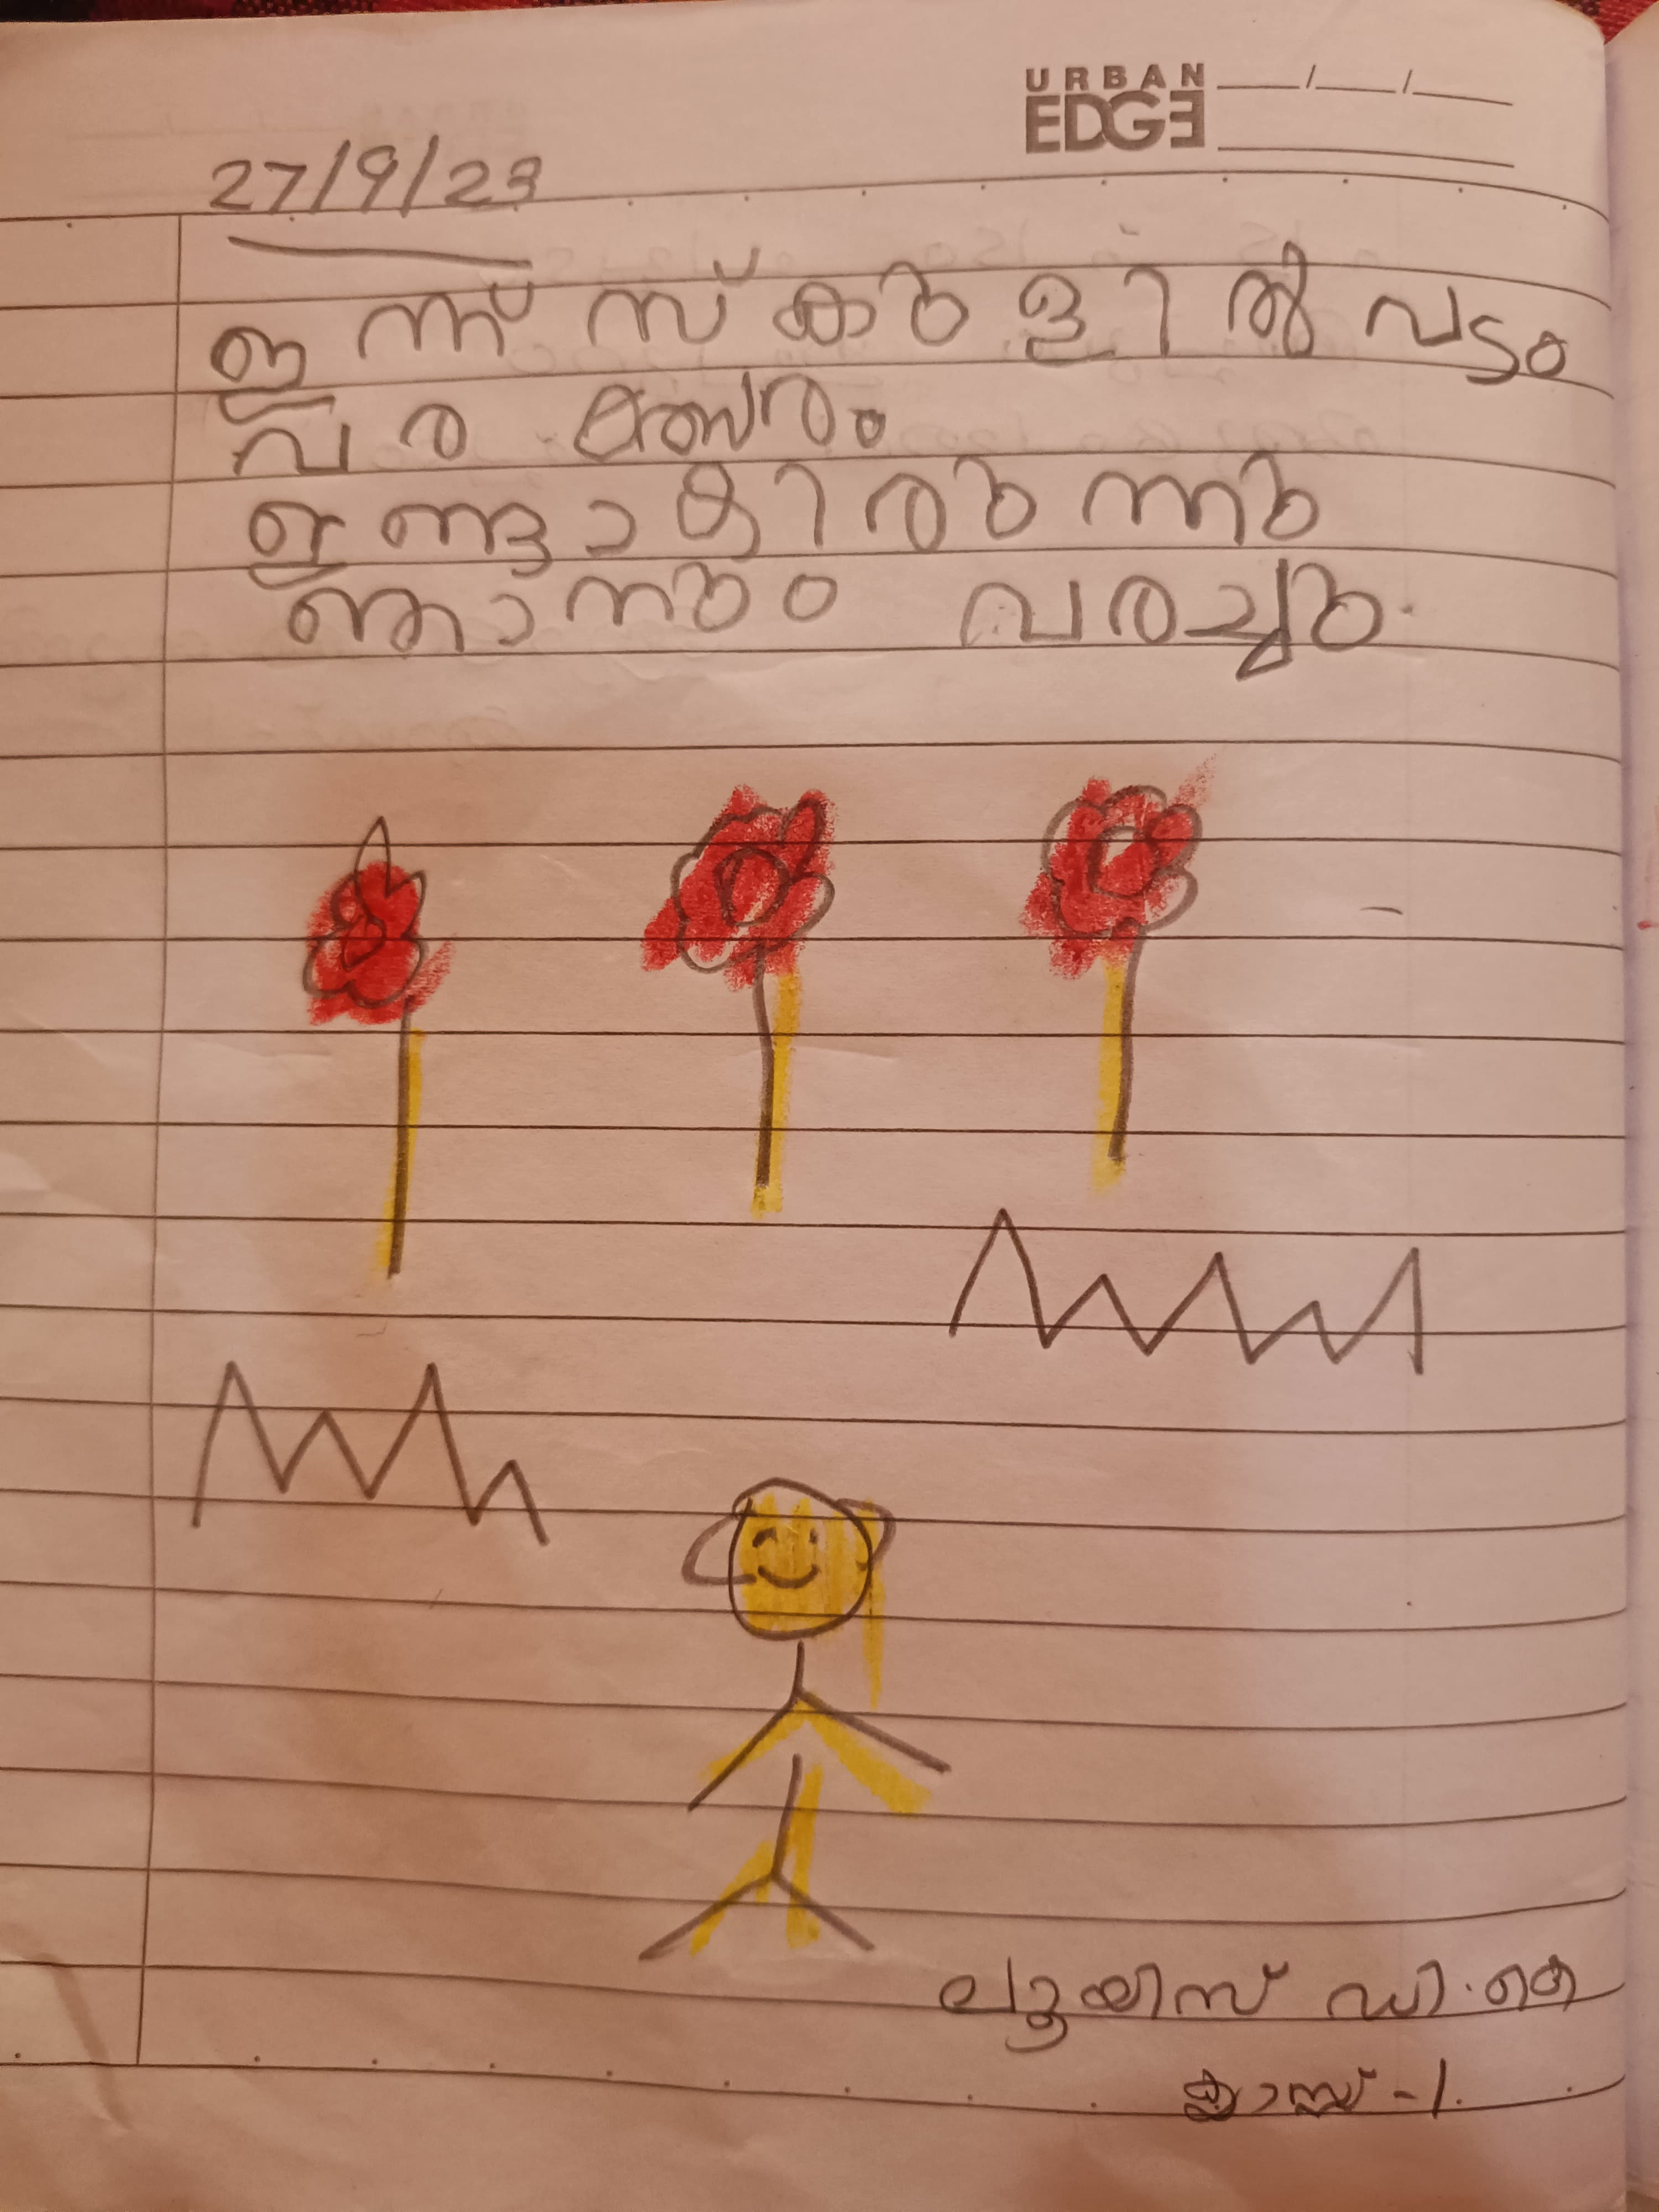 URBAN
EDGE
27/9/23
ഇന്ന് സ്കുളിൽ പടം
വര മത്സരം
ഉണ്ടായിരുന്നു
ഞാനും വരച്ചു.
ലൂയിസ് ഡി.കെ
ക്ലാസ്സ് -1.